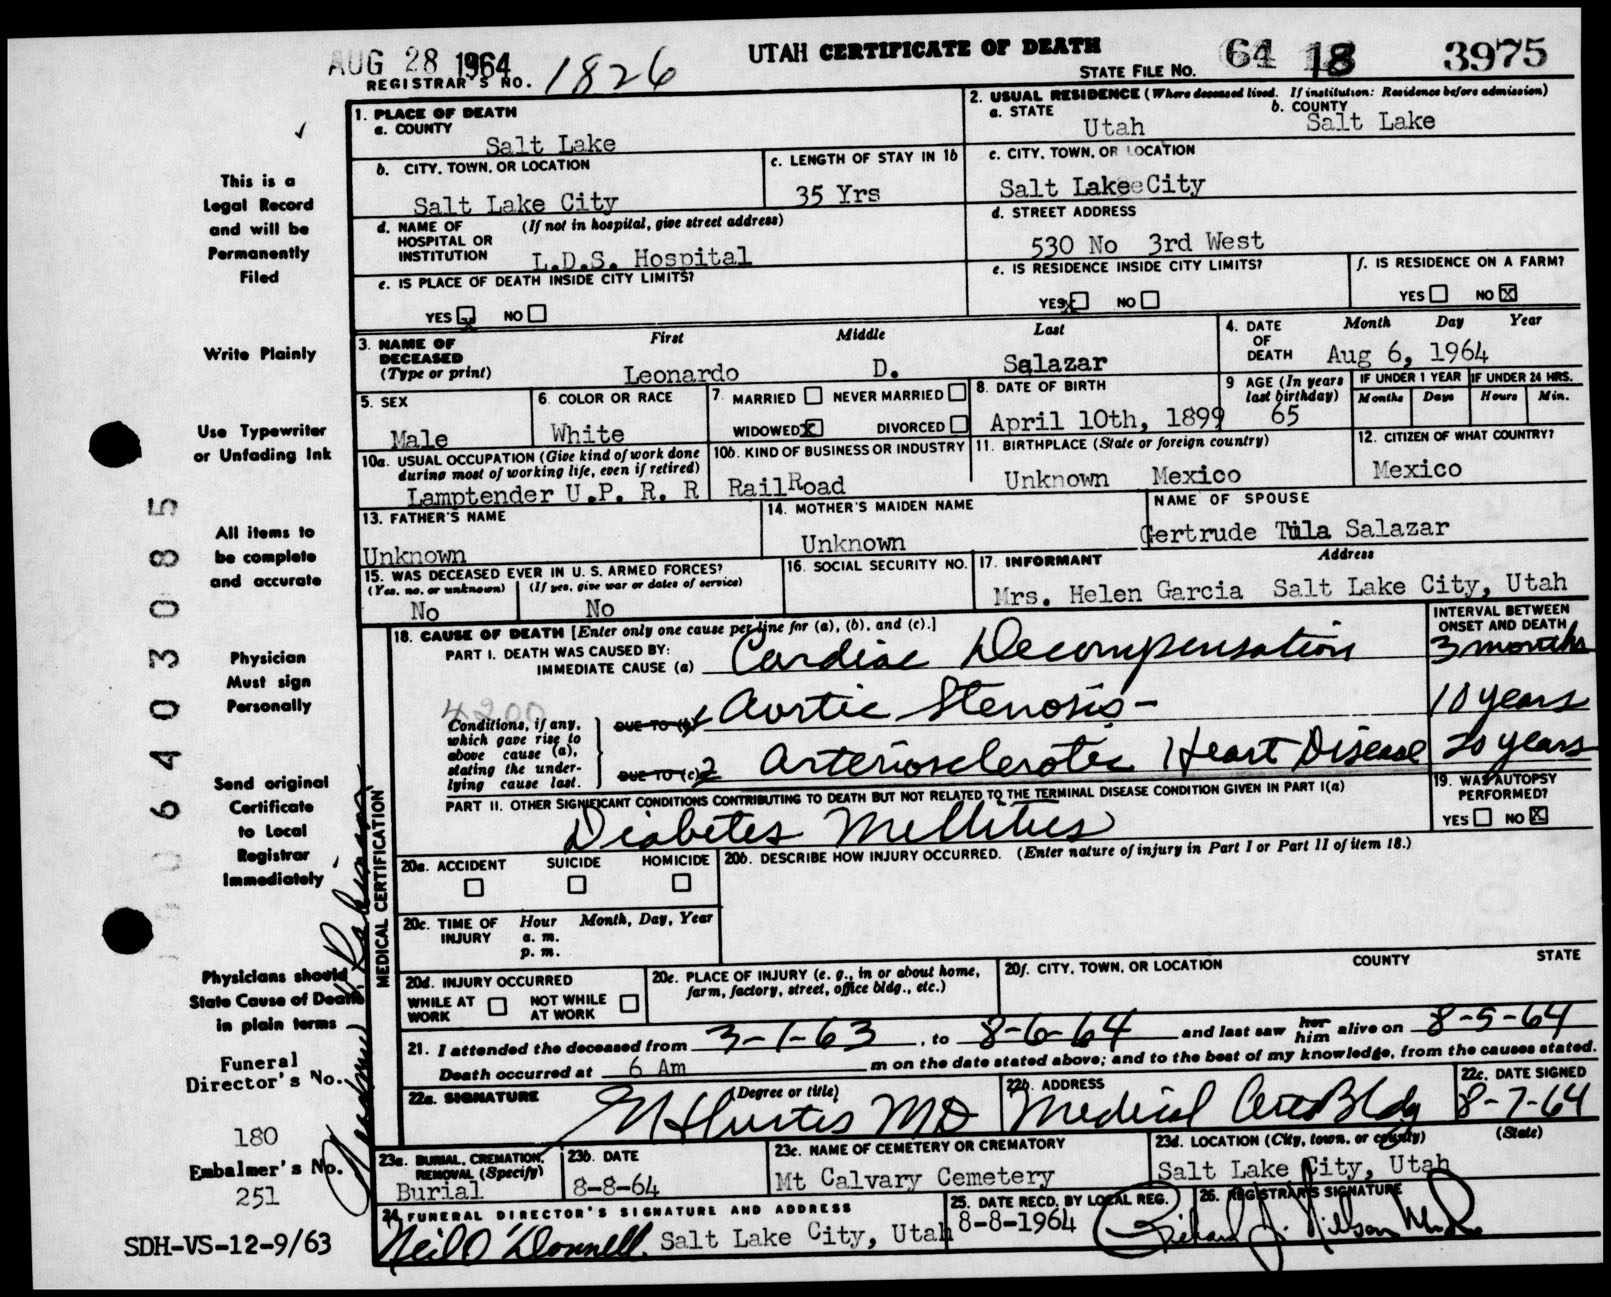 AUG 28 1964
UTAH CERTIFICATE OF DEATH
64 18 3975
REGISTRAR'S NO. 1826
STATE FILE NO.
1. PLACE OF DEATH
a. COUNTY
Salt Lake
2. USUAL RESIDENCE (Where deceased lived. If institution: Residence before admission)
a. STATE
Utah
b. COUNTY
Salt Lake
b. CITY, TOWN, OR LOCATION
Salt Lake City
c. LENGTH OF STAY IN 1b
35 Yrs
c. CITY, TOWN, OR LOCATION
Salt Lake City
d. NAME OF HOSPITAL OR INSTITUTION
(If not in hospital, give street address)
L.D.S. Hospital
d. STREET ADDRESS
530 No 3rd West
e. IS PLACE OF DEATH INSIDE CITY LIMITS?
YES x NO
e. IS RESIDENCE INSIDE CITY LIMITS?
YES x NO
f. IS RESIDENCE ON A FARM?
YES NO X
3. NAME OF DECEASED
(Type or print)
First Middle Last
Leonardo D. Salazar
4. DATE OF DEATH
Month Day Year
Aug 6, 1964
5. SEX
Male
6. COLOR OR RACE
White
7. MARRIED NEVER MARRIED
WIDOWED X DIVORCED
8. DATE OF BIRTH
April 10th, 1899
9 AGE (In years last birthday)
65
IF UNDER 1 YEAR
Months Days
IF UNDER 24 HRS.
Hours Min.
10a. USUAL OCCUPATION (Give kind of work done during most of working life, even if retired)
Lamptender U.P. R. R
10b. KIND OF BUSINESS OR INDUSTRY
RailRoad
11. BIRTHPLACE (State or foreign country)
Unknown Mexico
12. CITIZEN OF WHAT COUNTRY?
Mexico
13. FATHER'S NAME
Unknown
14. MOTHER'S MAIDEN NAME
Unknown
NAME OF SPOUSE
Gertrude Tula Salazar
15. WAS DECEASED EVER IN U. S. ARMED FORCES?
(Yes, no, or unknown) (If yes, give war or dates of service)
No No
16. SOCIAL SECURITY NO.
17. INFORMANT Address
Mrs. Helen Garcia Salt Lake City, Utah
18. CAUSE OF DEATH [Enter only one cause per line for (a), (b), and (c).]
PART I. DEATH WAS CAUSED BY:
IMMEDIATE CAUSE (a) Cardiac Decompensation
INTERVAL BETWEEN ONSET AND DEATH
3 months
4200
Conditions, if any, which gave rise to above cause (a), stating the underlying cause last.
DUE TO (b) 1 Aortic Stenosis -
10 years
DUE TO (c) 2 Arteriosclerotic Heart Disease
20 years
PART II. OTHER SIGNIFICANT CONDITIONS CONTRIBUTING TO DEATH BUT NOT RELATED TO THE TERMINAL DISEASE CONDITION GIVEN IN PART I(a)
Diabetes Mellitus
19. WAS AUTOPSY PERFORMED?
YES NO X
20a. ACCIDENT SUICIDE HOMICIDE
20b. DESCRIBE HOW INJURY OCCURRED. (Enter nature of injury in Part I or Part II of item 18.)
20c. TIME OF INJURY
Hour Month, Day, Year
a. m.
p. m.
20d. INJURY OCCURRED
WHILE AT WORK NOT WHILE AT WORK
20e. PLACE OF INJURY (e. g., in or about home, farm, factory, street, office bldg., etc.)
20f. CITY, TOWN, OR LOCATION COUNTY STATE
21. I attended the deceased from 3-1-63, to 8-6-64 and last saw her him alive on 8-5-64
Death occurred at 6 Am m on the date stated above; and to the best of my knowledge, from the causes stated.
22a. SIGNATURE (Degree or title)
MD
22b. ADDRESS
Medical Arts Bldg
22c. DATE SIGNED
8-7-64
23a. BURIAL, CREMATION, REMOVAL (Specify)
Burial
23b. DATE
8-8-64
23c. NAME OF CEMETERY OR CREMATORY
Mt Calvary Cemetery
23d. LOCATION (City, town, or county) (State)
Salt Lake City, Utah
24. FUNERAL DIRECTOR'S SIGNATURE AND ADDRESS
Neil O'Donnell. Salt Lake City, Utah
25. DATE RECD. BY LOCAL REG.
8-8-1964
26. REGISTRAR'S SIGNATURE
MEDICAL CERTIFICATION
This is a
Legal Record
and will be
Permanently
Filed
Write Plainly
Use Typewriter
or Unfading Ink
All items to
be complete
and accurate
Physician
Must sign
Personally
Send original
Certificate
to Local
Registrar
Immediately
Physicians should
State Cause of Death
in plain terms
Funeral
Director's No.
180
Embalmer's No.
251
SDH-VS-12-9/63
6403085